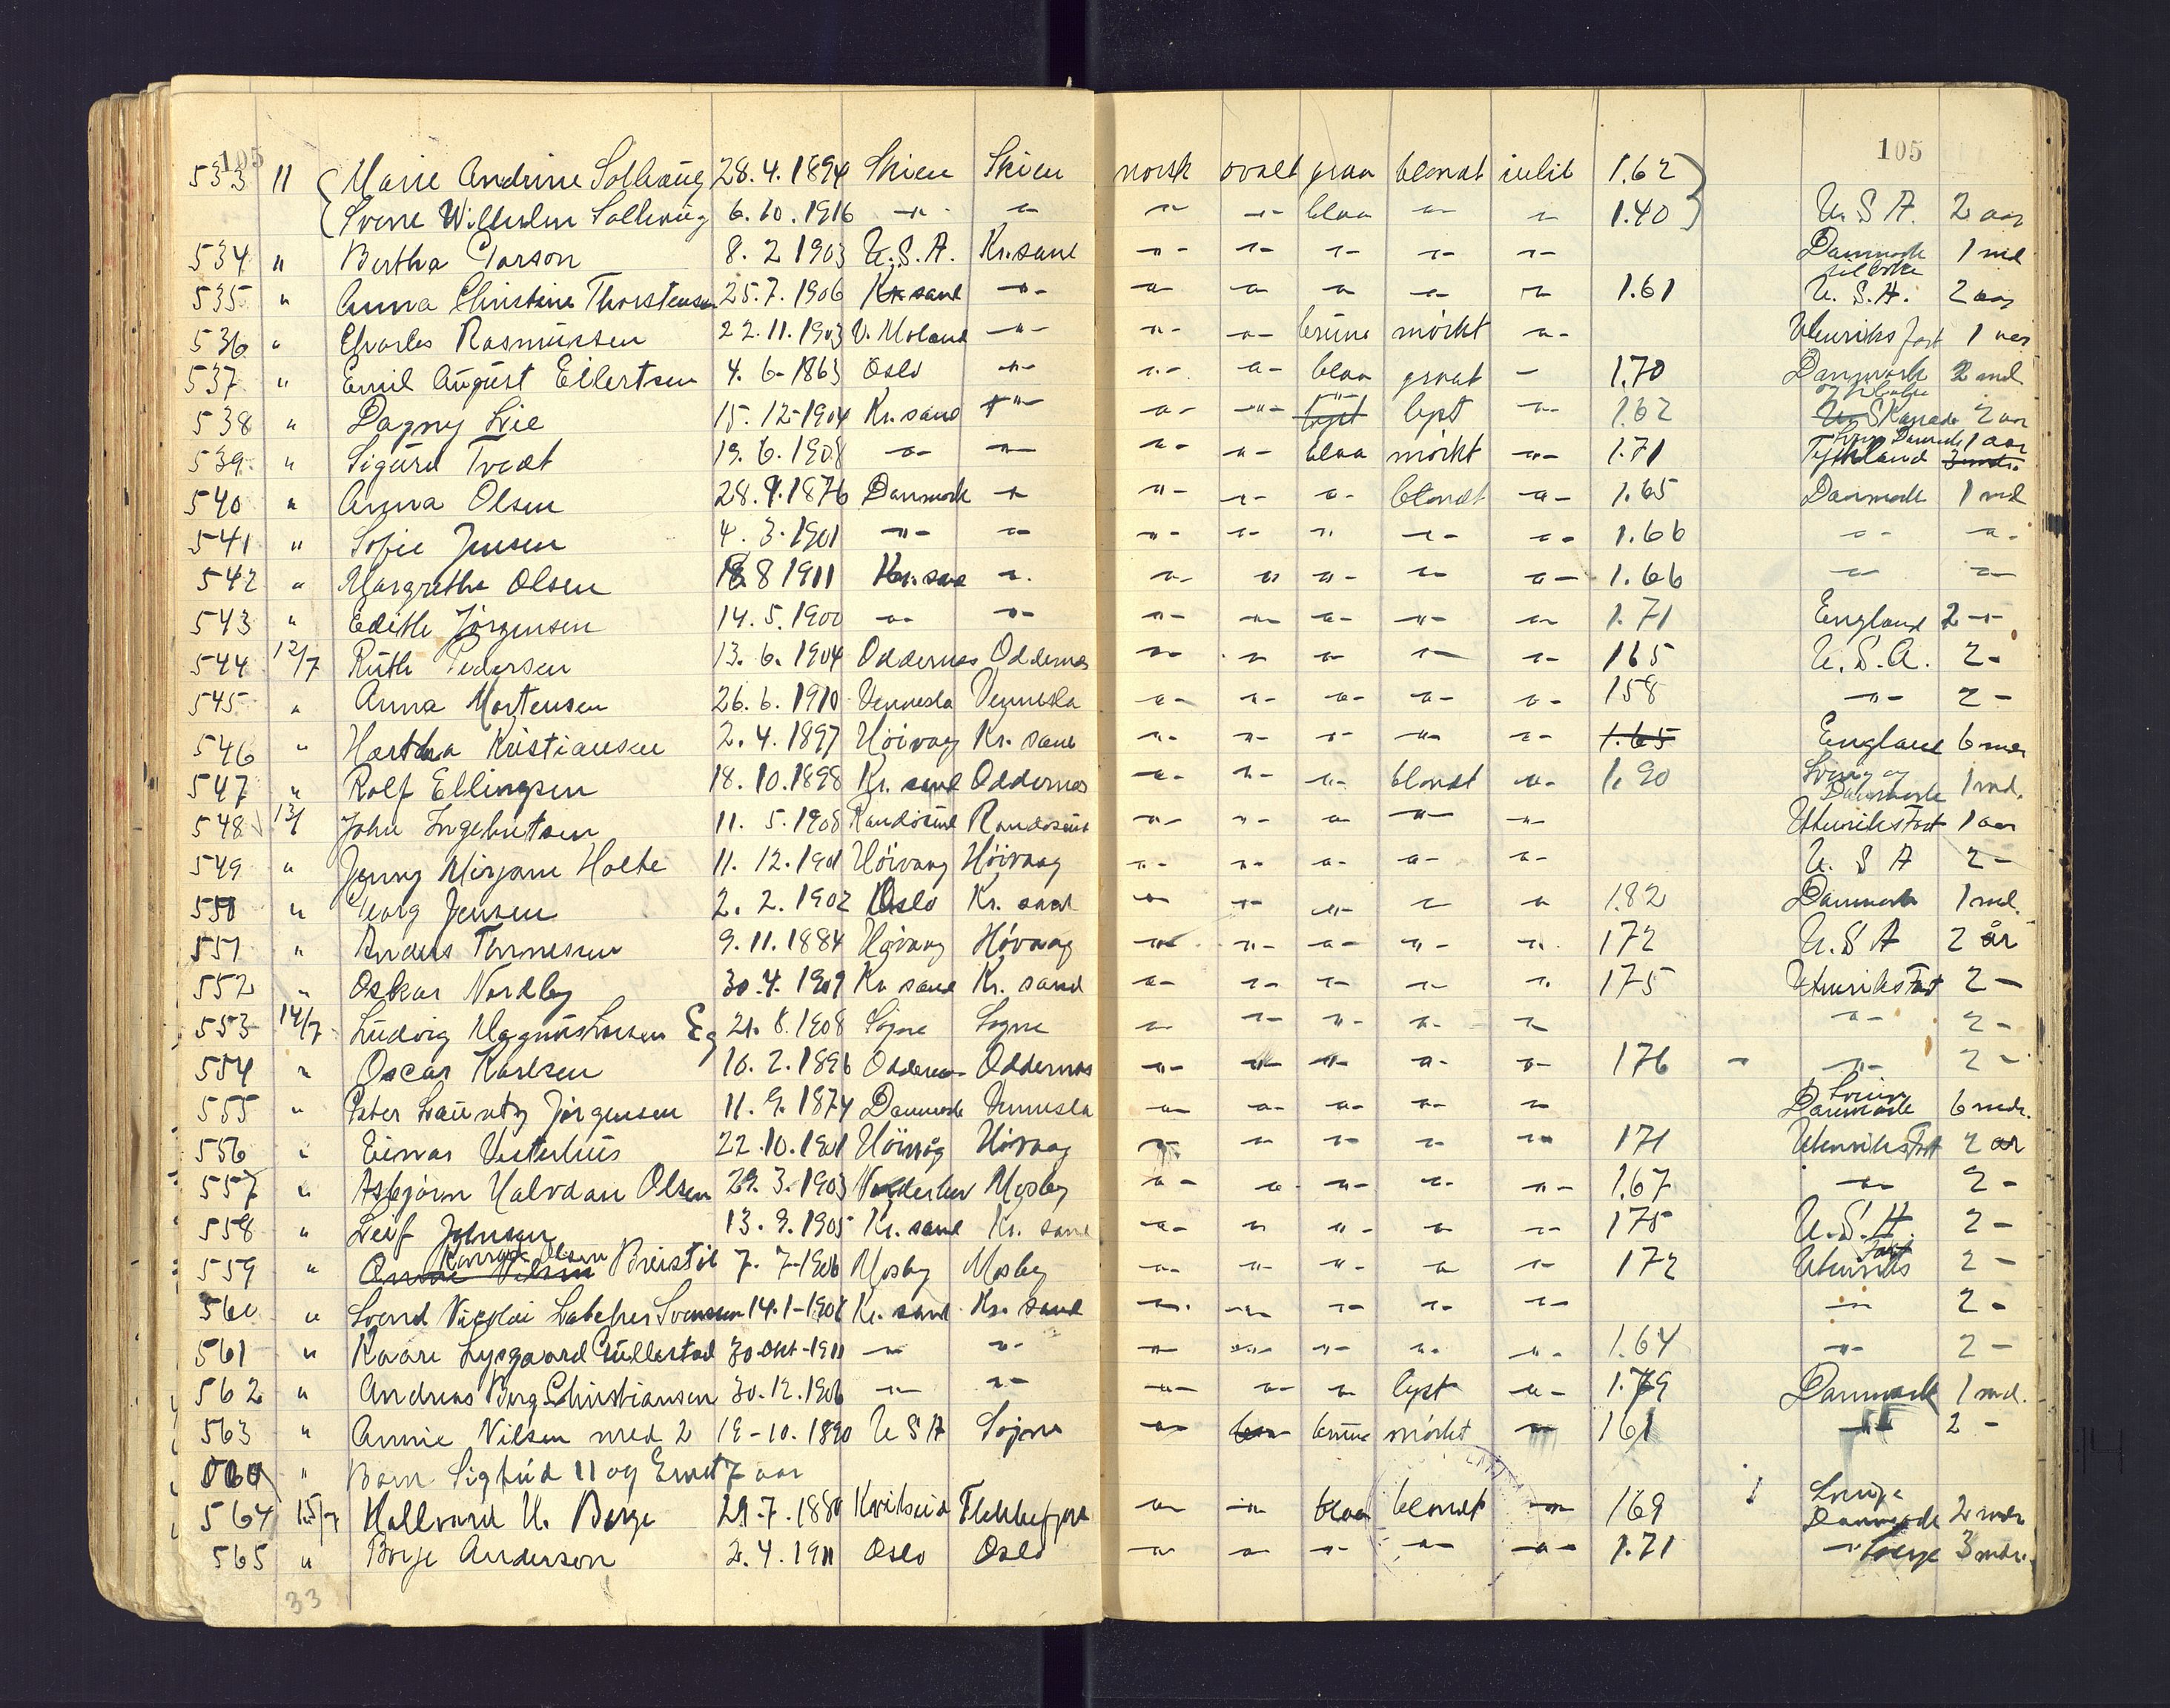 105 105
533 11 Marie Andrine Solhaug 28.4.1894 Skien Skien norsk ovalt graa blondt 1.62
Sverre Wilhelm Solhaug 6.10.1916 -"- -"- -"- -"- blaa -"- -"- 1.40 U.S.A. 2 aar
534 " Bertha Larson 8.2 1903 U.S.A. Kr.sand -"- -"- -"- -"- -"- Danmark 1 md
535 " Anna Christine Thorstensen 25.7.1906 Kr sand -"- -"- -"- -"- -"- -"- 1.61 U.S.A. 2 aar
536 " Charles Rasmussen 22.11.1903 V. Moland -"- -"- -"- brune mörkt -"- Utenriks fart 1 aar
537 " Emil August Ellertsen 4.6-1863 Oslo -"- -"- -"- blaa graat - 1.70 Danmark 2 md
538 " Dagny Lie 15.12-1904 Kr.sand -"- -"- -"- lyst lyst -"- 1.62 U S Kanada 2 aar
539 " Sigurd Tvedt 19.6.1908 -"- -"- -"- -"- blaa mörkt -"- 1.71 Tyskland Danmark 1 aar 3 mdr.
540 " Anna Olsen 28.9.1876 Danmark -"- -"- -"- -"- blondt -"- 1.65 Danmark 1 md
541 " Sofie Jensen 4.3.1901 -"- -"- -"- -"- -"- -"- -"- 1.66 -"- -"-
542 " Margrethe Olsen 18.8 1911 Kr.sand -"- -"- -"- -"- -"- -"- 1.66 -"- -"-
543 " Edith Jörgensen 14.5.1900 -"- -"- -"- -"- -"- -"- -"- 1.71 England 2 -"-
544 12/7 Ruth Pedersen 13.6.1904 Oddernes Oddernes -"- -"- -"- -"- -"- 165 U.S.A. 2-
545 " Anna Mortensen 26.6.1910 Vennesla Vennesla -"- -"- -"- -"- -"- 158 -"- 2 -
546 " Hertha Kristiansen 2.4.1897 Höivag Kr. sand -"- -"- -"- -"- -"- 1.65 England 6 mdr
547 " Rolf Ellingsen 18.10.1898 Kr. sand Oddernes -"- -"- -"- blondt -"- 1.90 Sverig og Danmark 1 md.
548 13/ John Ingebretsen 11.5.1908 Randösund Randösund -"- -"- -"- -"- -"- Utenriksfart 1 aar
549 " Jenny Mirjam Holte 11.12.1901 Höivaag Höivaag -"- -"- -"- -"- -"- U S A 2-
550 " Georg Jensen 2.2.1902 Oslo Kr. sand -"- -"- -"- -"- -"- 1.82 Danmark 1 md.
551 " Anders Tönnesen 9.11.1884 Hövaag Hövaag -"- -"- -"- -"- -"- 172 U.S A 2 år
552 " Oskar Nordby 30.4.1909 Kr sand Kr. sand -"- -"- -"- -"- -"- 175 Utenriksfart 2 -
553 14/7 Ludvig Magnus Larsen Eg 21.8.1908 Søgne Sogne -"- -"- -"- -"- -"- -"- 2-
554 " Oscar Karlsen 16.2.1896 Oddernes Oddernes -"- -"- -"- -"- -"- 176 - -"- 2 -
555 " Peter Lauritz Jörgensen 11.9.1874 Danmark Vennesla -"- -"- -"- -"- -"- Danmark 6 mdr.
556 " Einar Vesterhus 22.10.1901 Höivåg Hövaag -"- -"- -"- -"- -"- 171 Utenriksfart 2 år
557 " Asbjørn Halvdan Olsen 29.3.1903 Mosby -"- -"- -"- -"- -"- 1.67 -"- 2 -
558 " Leif Johnsen 13.9.1905 Kr. sand Kr. sand -"- -"- -"- -"- -"- 175 U.S.A. 2 -
559 " Olsen Breistöl 7.7-1906 Mosby Mosby -"- -"- -"- -"- -"- 172 Utenriks fart 2 -
560 " Svend Nicolai Svensen 14.1-1908 Kr. sand Kr. sand -"- -"- -"- -"- -"- -"- 2 -
561 " Kaare Lysgaard Gullestad 30-Okt-1911 -"- -"- -"- -"- -"- -"- -"- 1.64 -"- 2 -
562 " Andreas Berg Christiansen 30.12.1906 -"- -"- -"- -"- -"- lyst -"- 1.79 Danmark 1 md.
563 " Annie Nilsen med 2 18-10.1890 U S A Sogne -"- brune mörkt -"- 161 -"- 2 -
" Barn Sigfrid 11 og Ernst 7 aar
564 15/7 Hallvard H. Berge 29.7.1880 Kviteseid Flekkefjord -"- -"- blaa blondt -"- 169 Sverige Danmark 2 mdr
565 " Borge Anderson 2.4.1911 Oslo Oslo -"- -"- -"- -"- -"- 1.71 -"- Sverige 3 mdr.
33